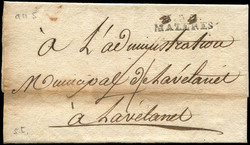 an 5
MAZERES
à L'administration
Municipal de Lavelanet
à Lavelanet